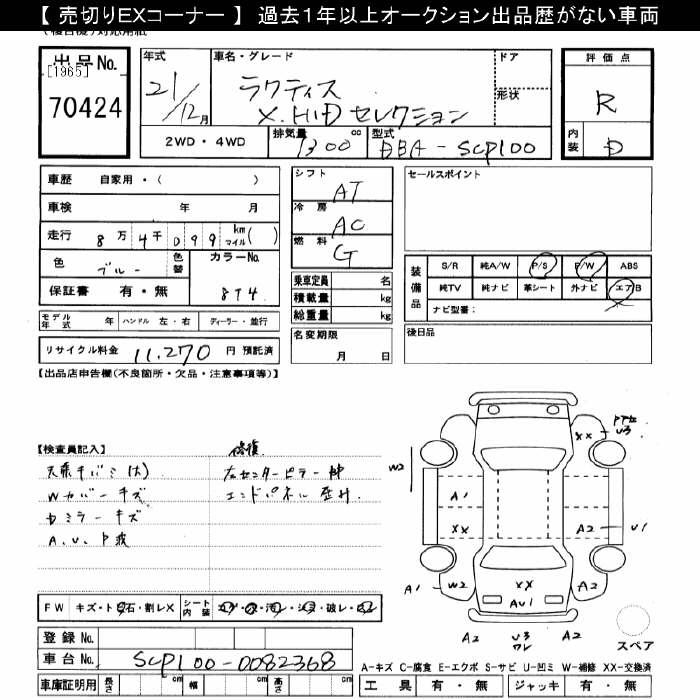 【 売切りEXコーナー 】 過去1年以上オークション出品歴がない車両
出品No. [1965] 70424
年式 21/12月
車名・グレード ラクティス X.HIDセレクション
ドア
形状
評価点 R
内装 D
2WD・4WD
排気量 1300 cc
型式 DBA-SCP100
車歴 自家用・( )
車検 年 月
走行 8万4千099 km マイル( )
色 ブルー
色替
カラーNo. 8T4
保証書 有・無
シフト AT
冷房 AC
燃料 G
乗車定員 名
積載量 kg
総重量 kg
セールスポイント
装備品
S/R 純A/W P/S P/W ABS
純TV 純ナビ 革シート 外ナビ エアB
ナビ型番:
モデル年式 年 ハンドル 左・右 ディーラー・並行
名変期限 月 日
後日品
リサイクル料金 11,270 円 預託済
【出品店申告欄(不良箇所・欠品・注意事項等)】
【検査員記入】
修復
左センターピラー
エンドパネル
Wカバーキズ
ドミラーキズ
A.U.P波
W2
XX
U3
A1
XX
A2
U1
A1
W2
XX
AU1
A2
A2
U3
ワレ
A2
スペア
FW キズ・ト 石・割レX
シート内装
登録No.
車台No. SCP100-0082368
A-キズ C-腐食 E-エクボ S-サビ U-凹ミ W-補修 XX-交換済
車庫証明用 長さ cm 幅 cm 高さ cm
工具 有・無 ジャッキ 有・無